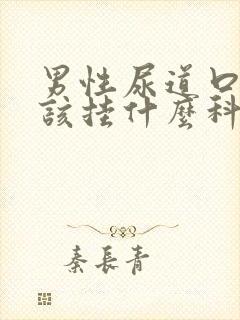 男性尿道口
該挂什麼科
秦長青